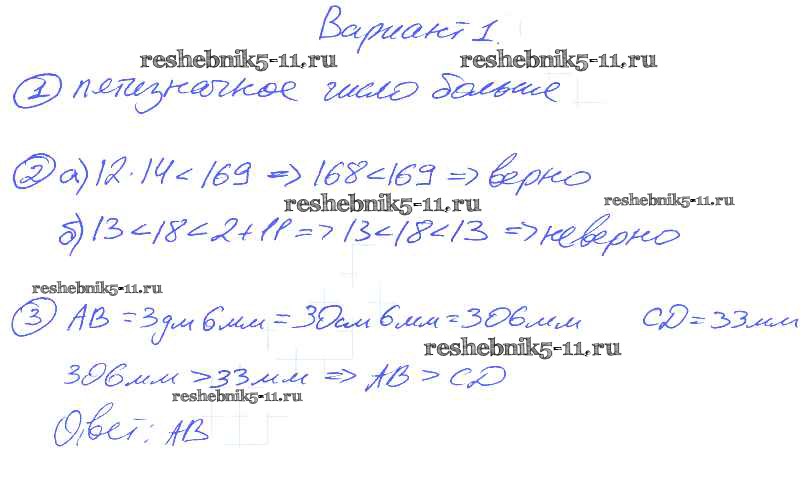 Вариант 1.
reshebnik5-11.ru reshebnik5-11.ru
① пятизначное число больше
② а) 12·14 < 169 => 168 < 169 => верно
reshebnik5-11.ru reshebnik5-11.ru
б) 13 < 18 < 2 + 11 => 13 < 18 < 13 => неверно
reshebnik5-11.ru
③ AB = 3дм 6мм = 30см 6мм = 306мм CD = 33мм
reshebnik5-11.ru
306мм > 33мм => AB > CD
reshebnik5-11.ru
Ответ: AB